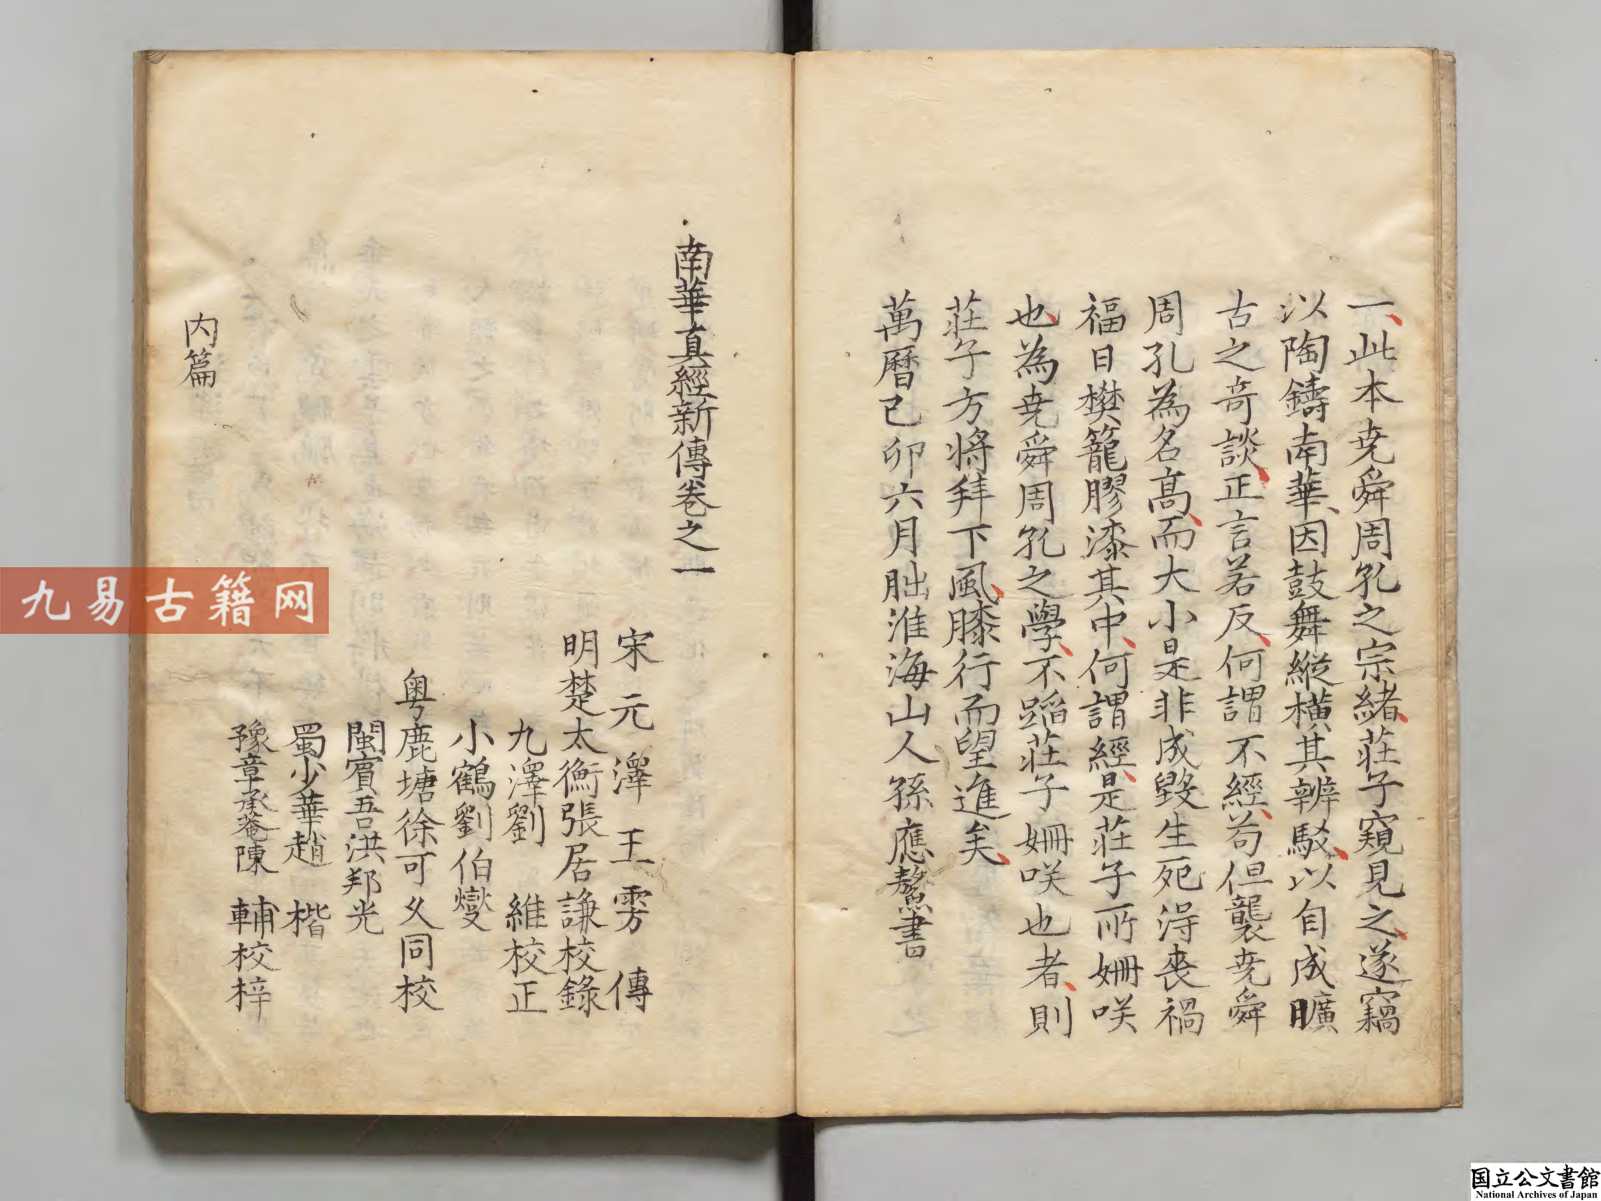 一此本尭舜周孔之宗緒莊子窺見之遂竊
以陶鑄南華因鼓舞縱橫其辨駁以自成曠
古之奇談正言若反何謂不經苟但襲尭舜
周孔為名髙而大小是非成毀生死淂喪禍
福日樊籠膠漆其中何謂經是莊子所姍咲
也為尭舜周孔之學不蹈莊子姍咲也者則
莊子方将拜下風膝行而望進矣
萬曆己卯六月朏淮海山人孫應鰲書
南華真經新傳卷之一
宋元澤王雱傳
明楚太衡張居謙校錄
九澤劉維校正
小鶴劉伯燮
粤鹿塘徐可久同校
閩賓吾洪邦光
蜀少華趙楷
豫章承菴陳輔校梓
内篇
九易古籍网
国立公文書館
National Archives of Japan